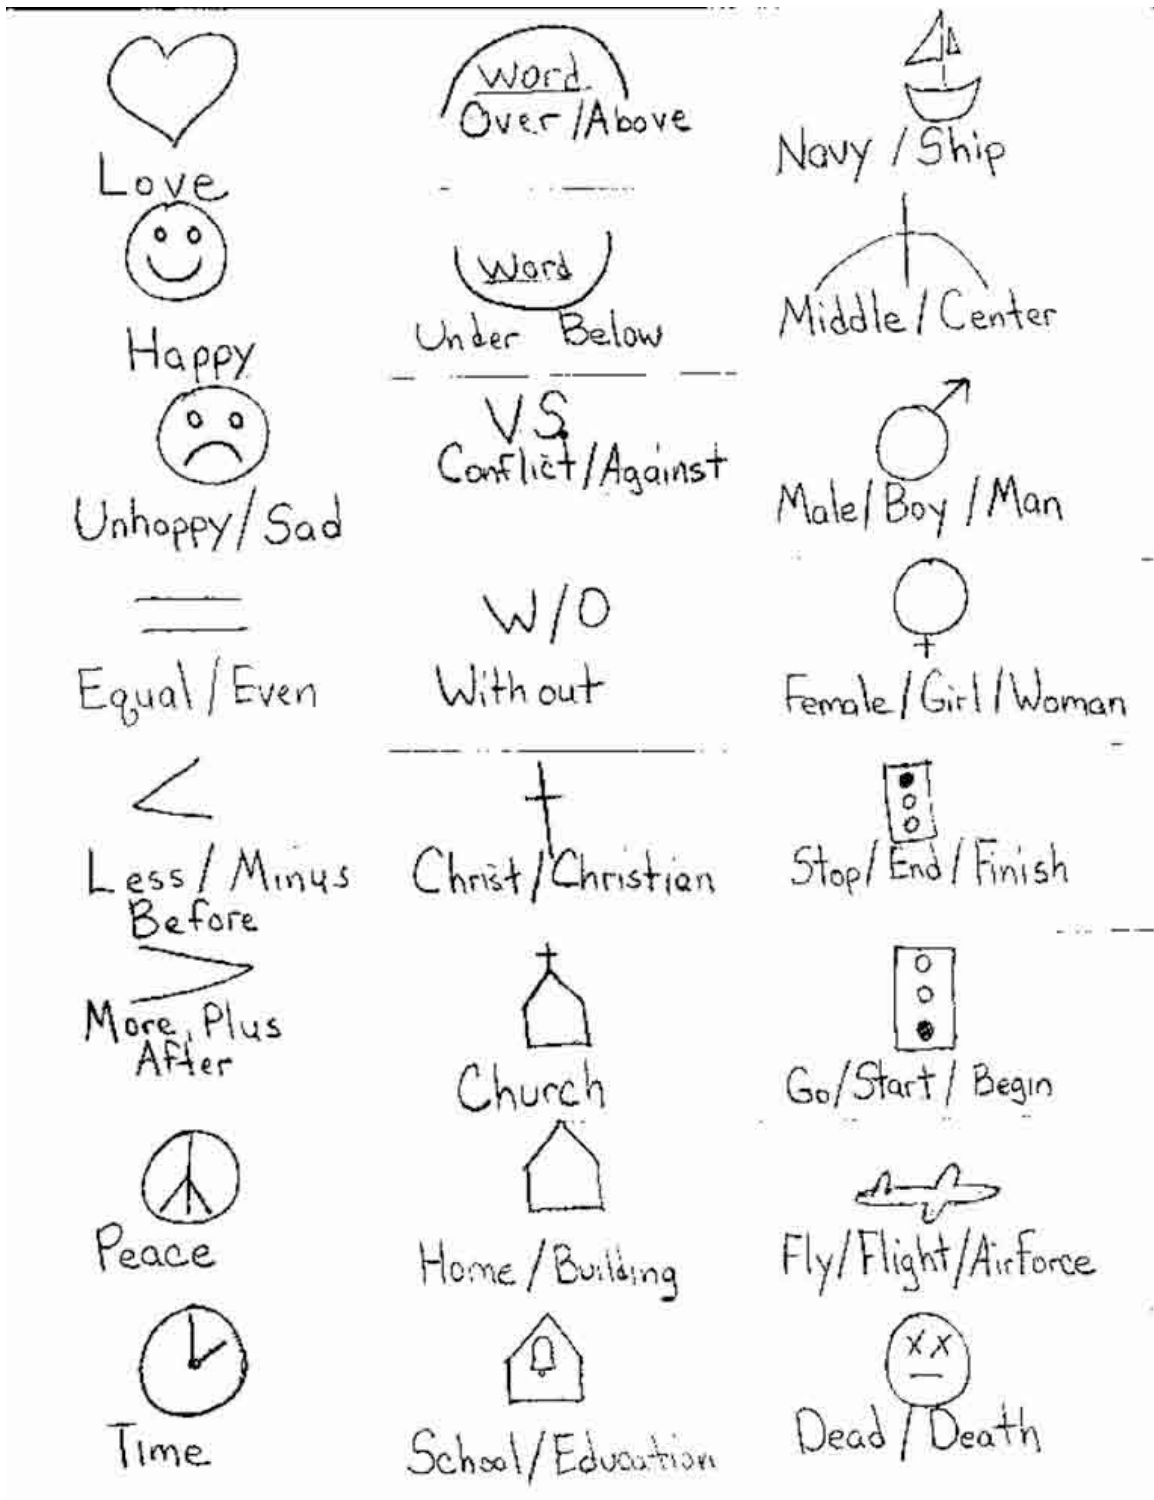 Love
Happy
Unhappy/Sad
Equal/Even
Less/Minus
Before
More, Plus
After
Peace
Time
Word
Over/Above
Word
Under Below
VS.
Conflict/Against
W/O
Without
Christ/Christian
Church
Home/Building
School/Education
Navy/Ship
Middle/Center
Male/Boy/Man
Female/Girl/Woman
Stop/End/Finish
Go/Start/Begin
Fly/Flight/Airforce
XX
Dead/Death